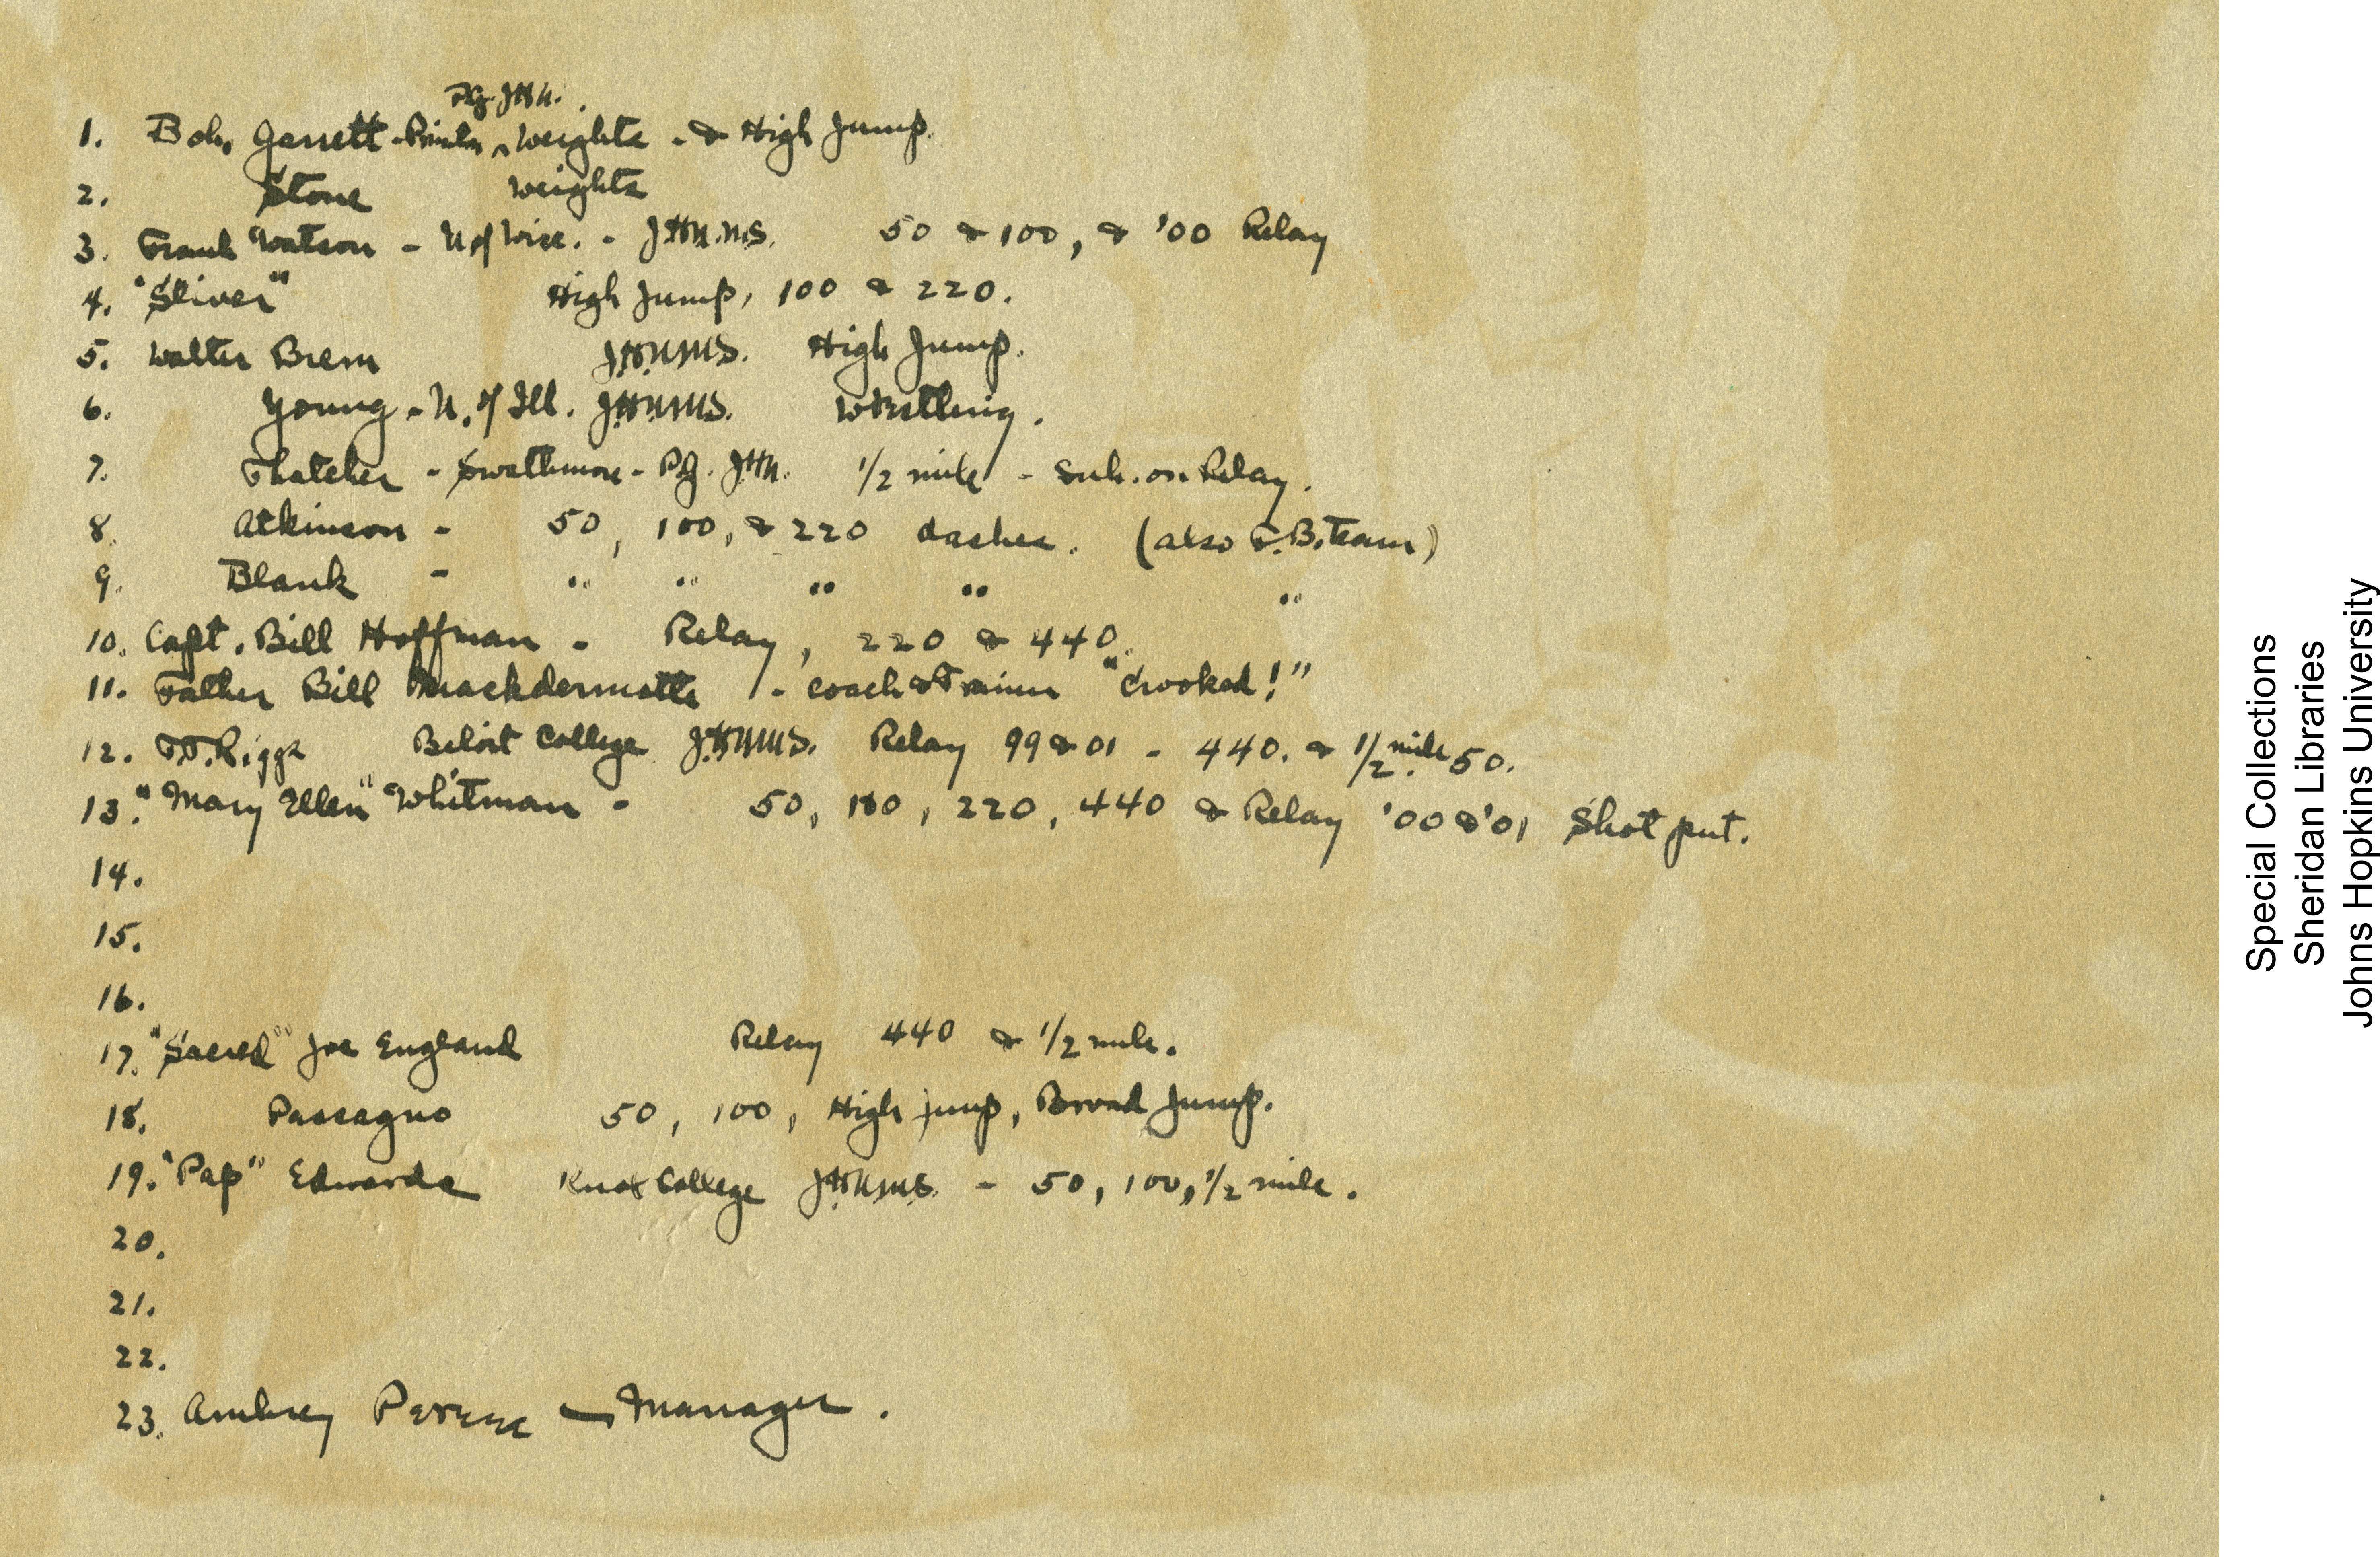 P.G. J.H.U.
1. Bob. Garrett - Princeton, Weights - & High Jump.
2. Stone Weights
3. Frank Watson - U of Wisc. - J.H.U.M.S. 50 & 100, & '00 Relay
4. "Sliver" High Jump, 100 & 220.
5. Walter Brem J.H.U.M.S. High Jump.
6. Young - U. of Ill. J.H.U.M.S. Wrestling.
7. Thatcher - Swathmore - P.G. J.H.U. 1/2 mile - Sub. on Relay.
8. Atkinson - 50, 100, & 220 dashes. (also F.B. Team)
9. Blank - " " " " "
10. Capt. Bill Hoffman - Relay, 220 & 440.
11. Father Bill Mackdermotte - Coach & Trainer "Crooked!"
12. T.F. Riggs Beloit College J.H.U.M.S. Relay 99 & 01 - 440. & 1/2 mile 50.
13. "Mary Ellen" Whitman - 50, 100, 220, 440 & Relay '00 & '01 Shot put.
14.
15.
16.
17. "Sacred" Joe England Relay 440 & 1/2 mile.
18. Passagno 50, 100, High jump, Broad Jump.
19. "Pap" Edwards Knox College J.H.U.M.S. - 50, 100, 1/2 mile.
20.
21.
22.
23. Manager.
Special Collections
Sheridan Libraries
Johns Hopkins University